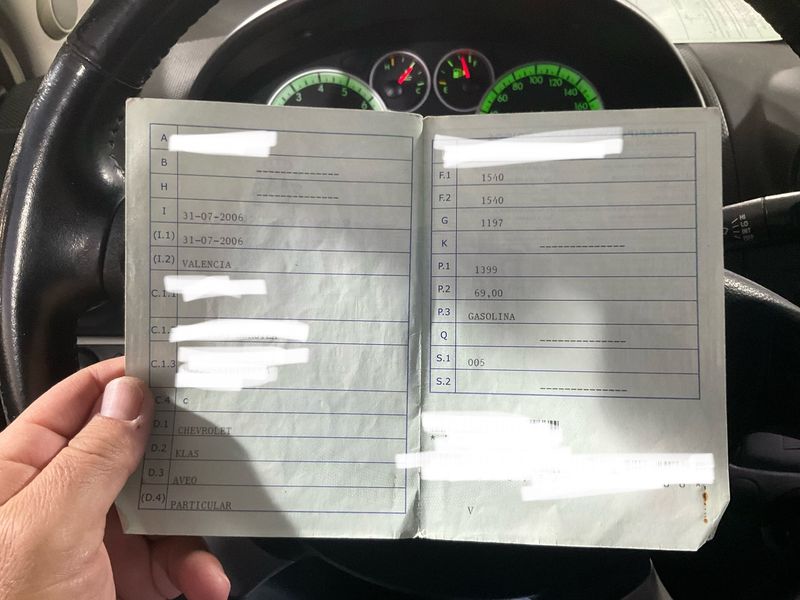 A
B --------------
H --------------
I 31-07-2006
(I.1) 31-07-2006
(I.2) VALENCIA
C.1.1
C.1.
C.1.3
C.4 c
D.1 CHEVROLET
D.2 KLAS
D.3 AVEO
(D.4) PARTICULAR
F.1 1540
F.2 1540
G 1197
K --------------
P.1 1399
P.2 69,00
P.3 GASOLINA
Q --------------
S.1 005
S.2 --------------
V
3 4 5 6
H C
F
60 80 100 120 140 160
HI
LO
INT